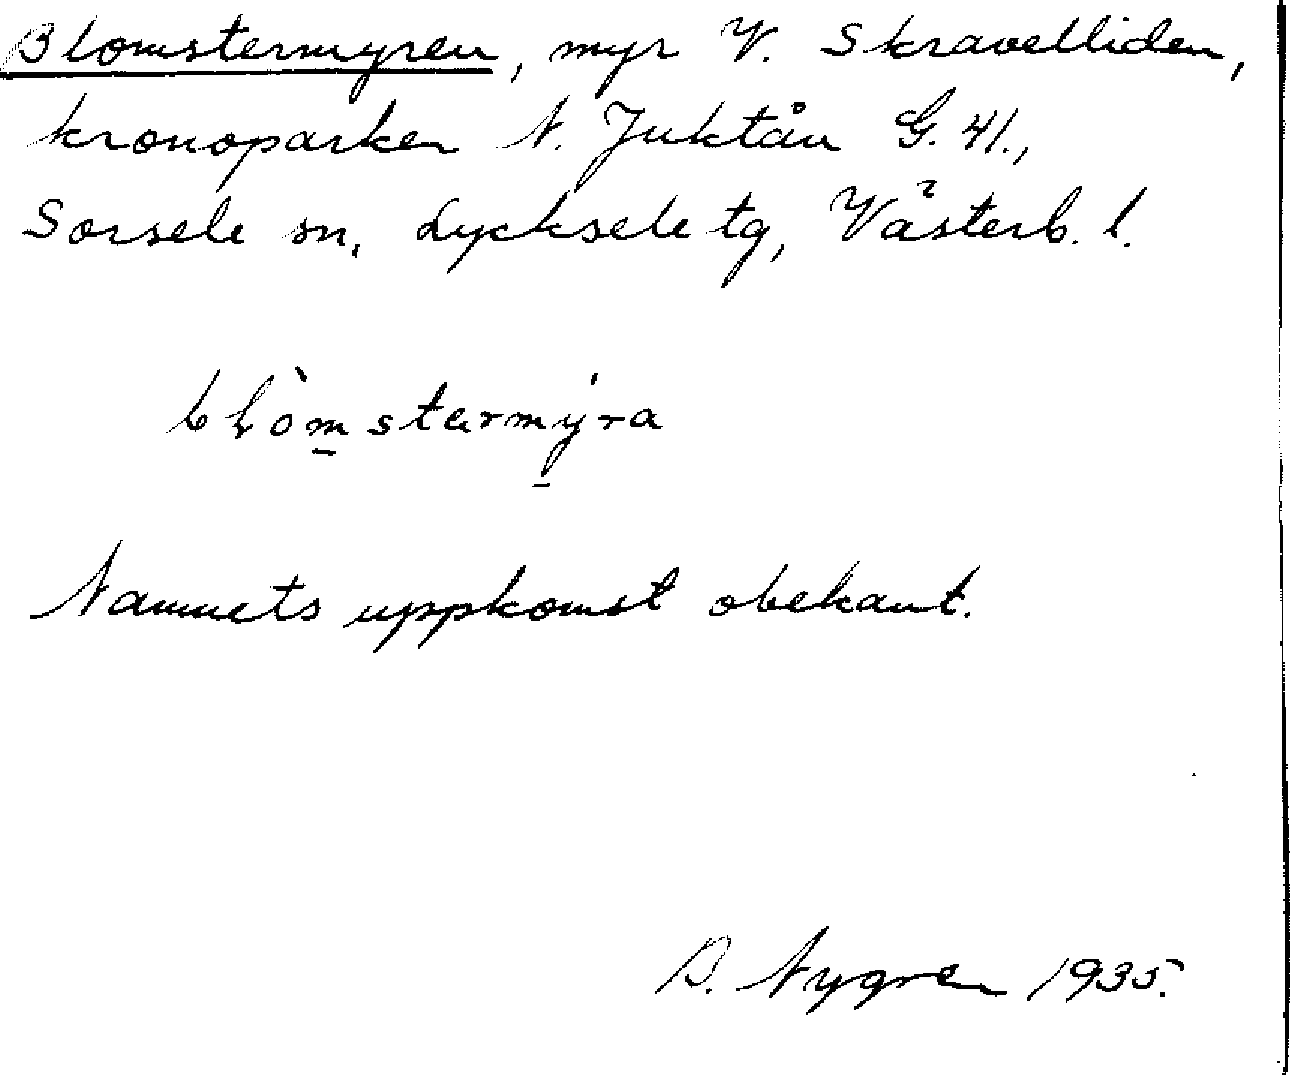 Blomstermyren, myr V. Skravelliden,
kronoparken N. Juktån G. 41.,
Sorsele sn, Lycksele tg, Västerb. l.
blòmstermýra
Namnets uppkomst obekant.
B. Nygren 1935.